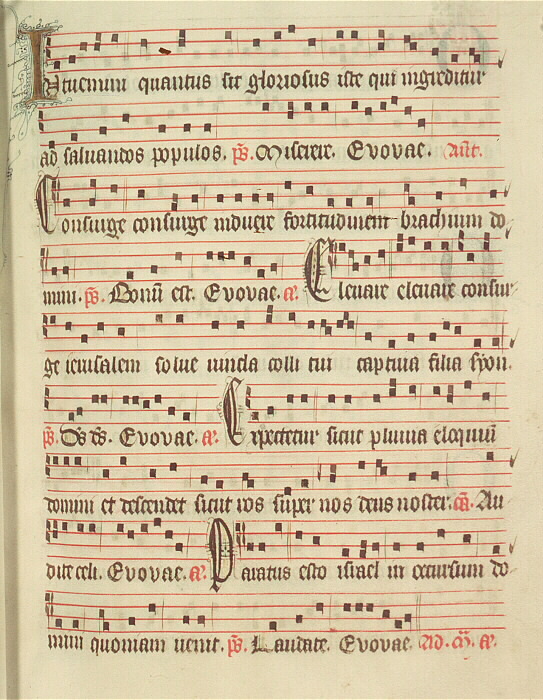 Intuemini quantus sit gloriosus iste qui ingreditur
ad saluandos populos. ps. Miserere. Evovae. Ant.
Consurge consurge induere fortitudinem brachium do
mini. ps. Bonū est. Evovae. a. Elevare elevare consur
ge ierusalem solve vincla colli tui captiva filia syon.
ps. Ds ds. Evovae. a. Expectetur sicut pluvia eloquiū
domini et descendet sicut ros super nos deus noster. cā. Au
dite celi. Evovae. a. Paratus esto israel in occursum do
mini quoniam venit. ps. Laudate. Evovae. Ad. m. a.